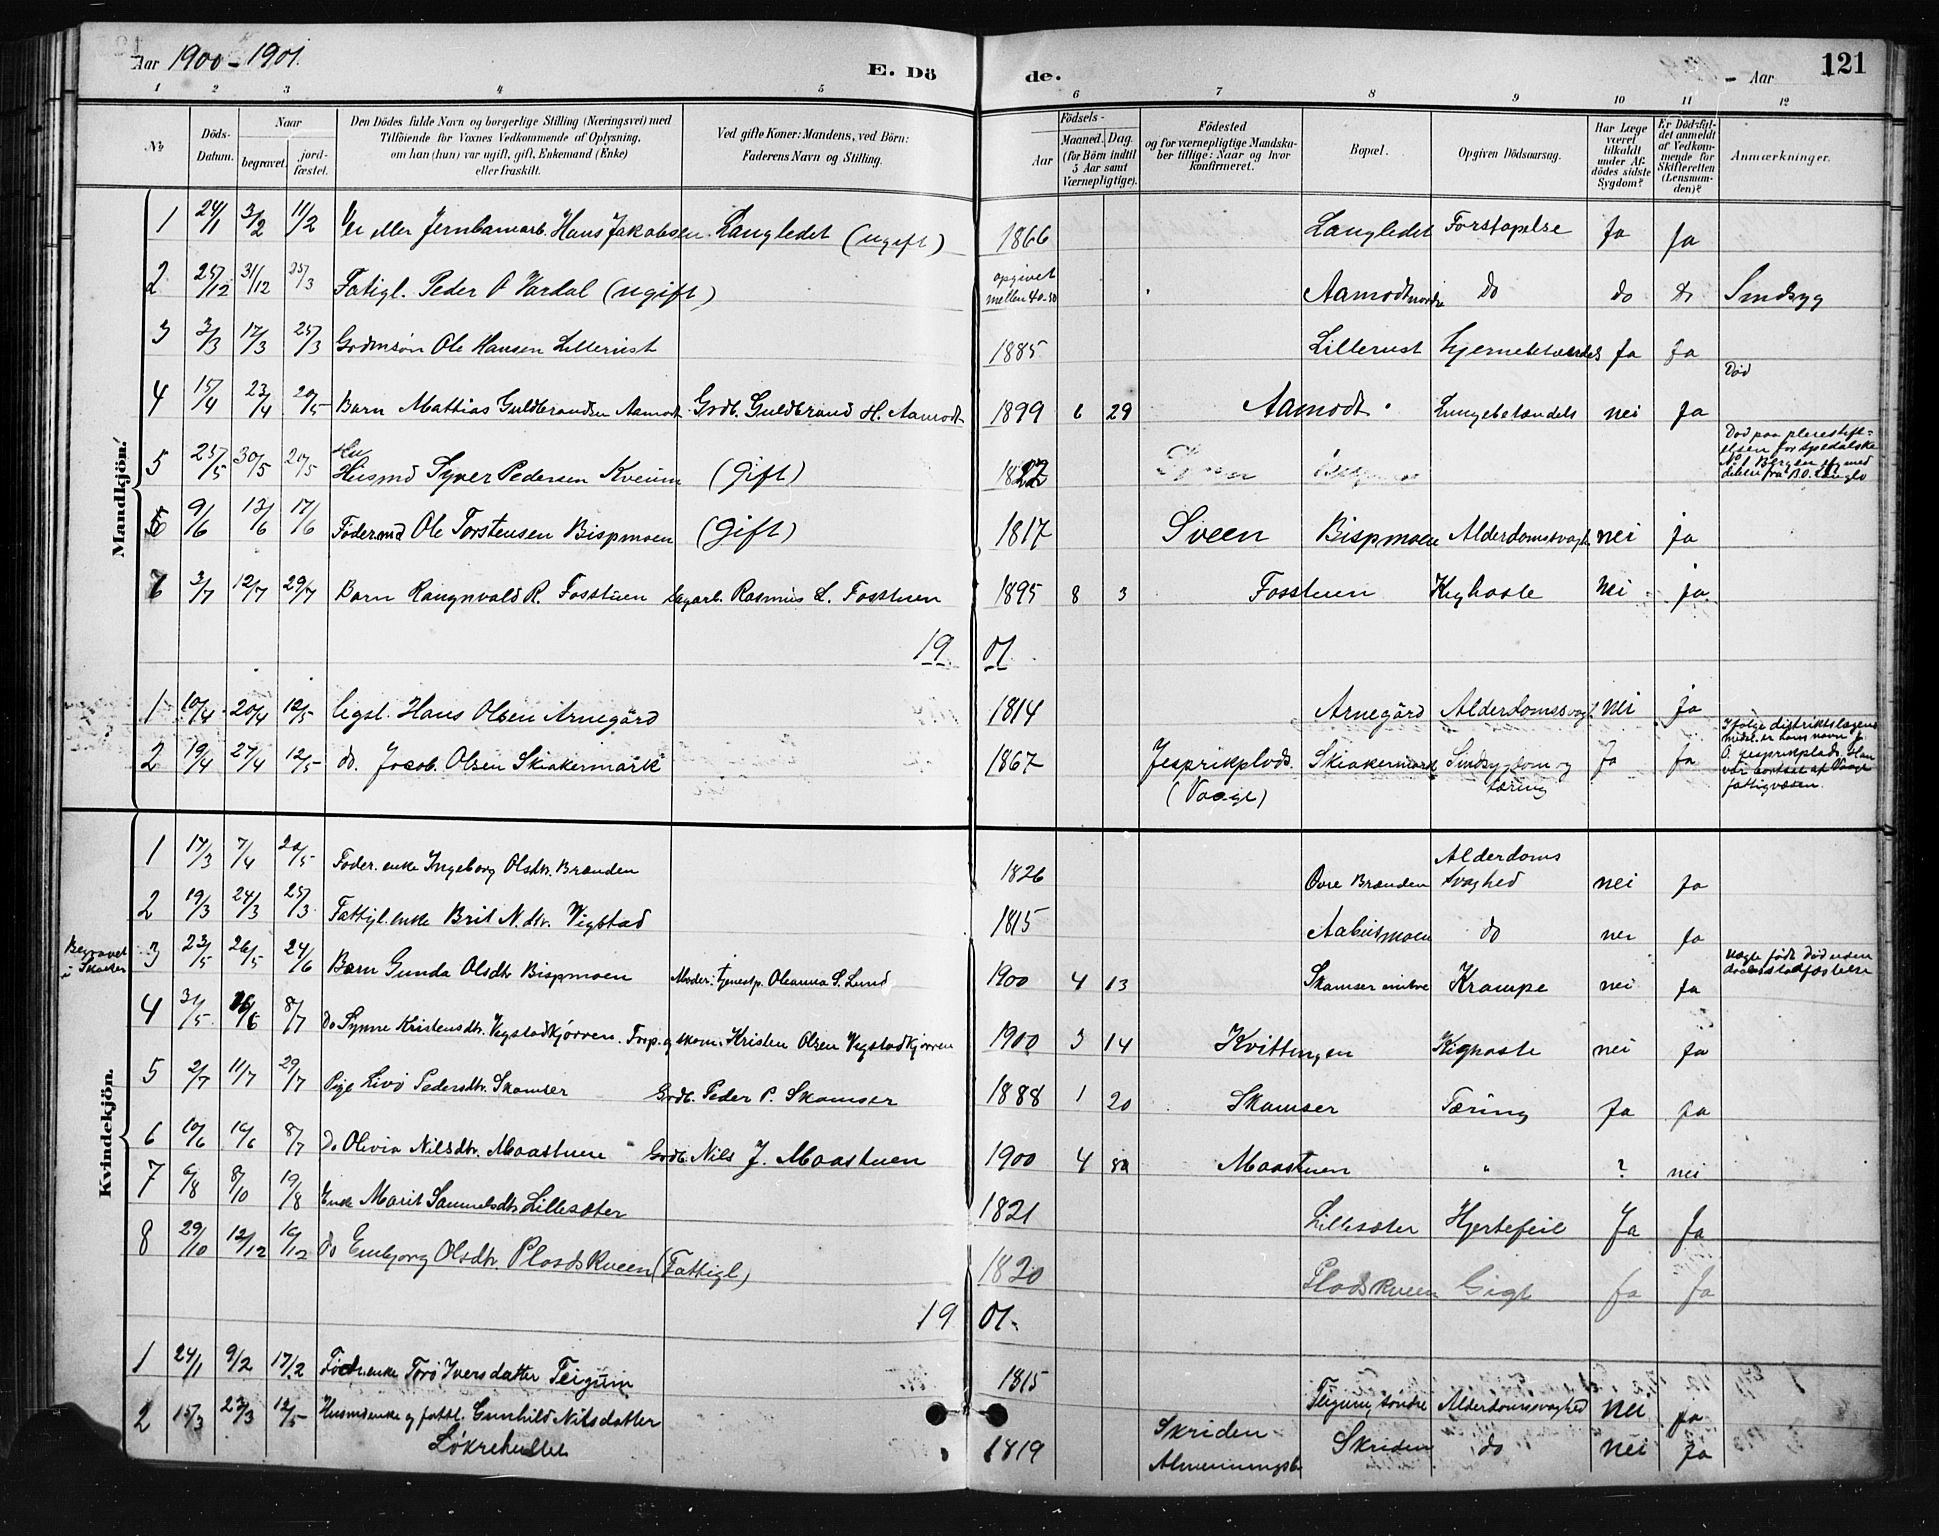 Aar 1900-1901.
E. Dö de.
- Aar 121
1 2 3 4 5 6 7 8 9 10 11 12
No
Döds-Datum.
Naar
begravet.
jord-fæstet.
Den Dødes fulde Navn og borgerlige Stilling (Næringsvei) med
Tilföiende for Voxnes Vedkommende af Oplysning,
om han (hun) var ugift, gift, Enkemand (Enke)
eller fraskilt.
Ved gifte Koner: Mandens, ved Börn:
Faderens Navn og Stilling.
Födsels-
Aar
Maaned. Dag.
(for Börn indtil
5 Aar samt
Værnepligtige).
Födested
og for værnepligtige Mandska-
ber tillige: Naar og hvor
konfirmeret.
Bopæl.
Opgiven Dödsaarsag.
Har Læge
været
tilkaldt
under Af-
dödes sidste
Sygdom?
Er Dödsfal-
det anmeldt
af Vedkom-
mende for
Skifteretten
(Lensman-
den)?
Anmærkninger.
Mandkjön.
1 24/1 3/2 11/2 Jernbanearb. Hans Jakobsen Langledet (ugift) 1866 Langledet Forstopelse Ja ja
2 25/12 31/12 25/3 Fatigl. Peder O Vardal (ugift) opgivet mellem 40-50 Aamodt nordre do do do Sindsyg
3 3/3 17/3 25/3 Grdmsøn Ole Hansen Lillerust 1885 Lillerust Hjernebetændels ja ja
4 15/4 23/4 20/5 Barn Mathias Guldbrandsen Aamodt Grdb. Guldbrand H. Aamodt 1899 6 29 Aamodt Lungebetændels nei ja
Død
5 25/5 30/5 20/5 Husmd Syver Pedersen Kveum (gift) 1822
Død paa pleiestift-
elsen for spedalske
No 1 Bergen
6 9/6 13/6 17/6 Fødermd Ole Torstensen Bispmoen (Gift) 1817 Sveen Bispmoen Alderdomssvagh. nei ja
7 3/7 12/7 29/7 Barn Rangnvald R. Fosstuen Dagarb. Rasmus L. Fosstuen 1895 8 3 Fosstuen Kighoste nei ja
19 01.
1 10/4 20/4 12/5 Legsl. Hans Olsen Arnegård 1814 Arnegård Alderdomssvagh. nei ja
2 19/4 27/4 12/5 do. Jacob Olsen Skiakermark 1867 Jesprikplads. (Vaage) Skiakermark Sindsygdom og tæring Ja ja
Ifølge distriktslægens
meld. er hans navn J.
O. Jesprikplads. Han
var bortsat af Vaage
fattigvæsen.
Kvindekjön.
1 17/3 7/4 20/5 Føder. enke Ingeborg Olsdtr. Brænden 1826 Øvre Brænden Alderdoms svaghed nei ja
2 19/3 24/3 25/3 Fattigl. enke Brit N.dtr. Vigstad 1815 Aabutmoen do nei ja
Begravet
i Skæker
3 23/5 26/5 24/6 Barn Gunda Olsdtr Bispmoen Moder: tjenestp. Oleanna S. Lund 1900 4 13 Skamser midtre Krampe nei ja
Uægte født død uden
daabsstadfæstelse
4 31/5 16/6 8/7 do Synne Kristensdtr. Vigstadkjørren. Forp. og skom. Kristen Olsen Vigstadkjørren 1900 3 14 Kvittingen Kighoste nei ja
5 2/7 11/7 29/7 Pige Livø Pedersdtr. Skamser Grdb. Peder P. Skamser 1888 1 20 Skamser Tæring ja ja
6 10/6 16/6 8/7 do Olivia Nilsdtr. Maastuen Grdb. Nils J. Maastuen 1900 4 Maastuen " ? nei
7 6/8 8/10 19/8 Enke Marit Samuelsdtr Lillesæter 1821 Lillesæter Hjertefeil Ja Ja
8 29/10 12/12 16/12 do Embjorg Olsdtr. Pladskveen (Fattigl) 1820 Pladskveen Gigt ja ja
19 01.
1 24/1 9/2 17/2 Føder.enke Torø Iversdatter Teigum 1815 Teigum, søndre Alderdomssvaghed Nei ja
2 15/3 23/3 12/5 Husmdenke og fattl. Gunhild Nilsdatter
Løkrehullet 1819 Skriden Almenningsb. Skriden do nei ja